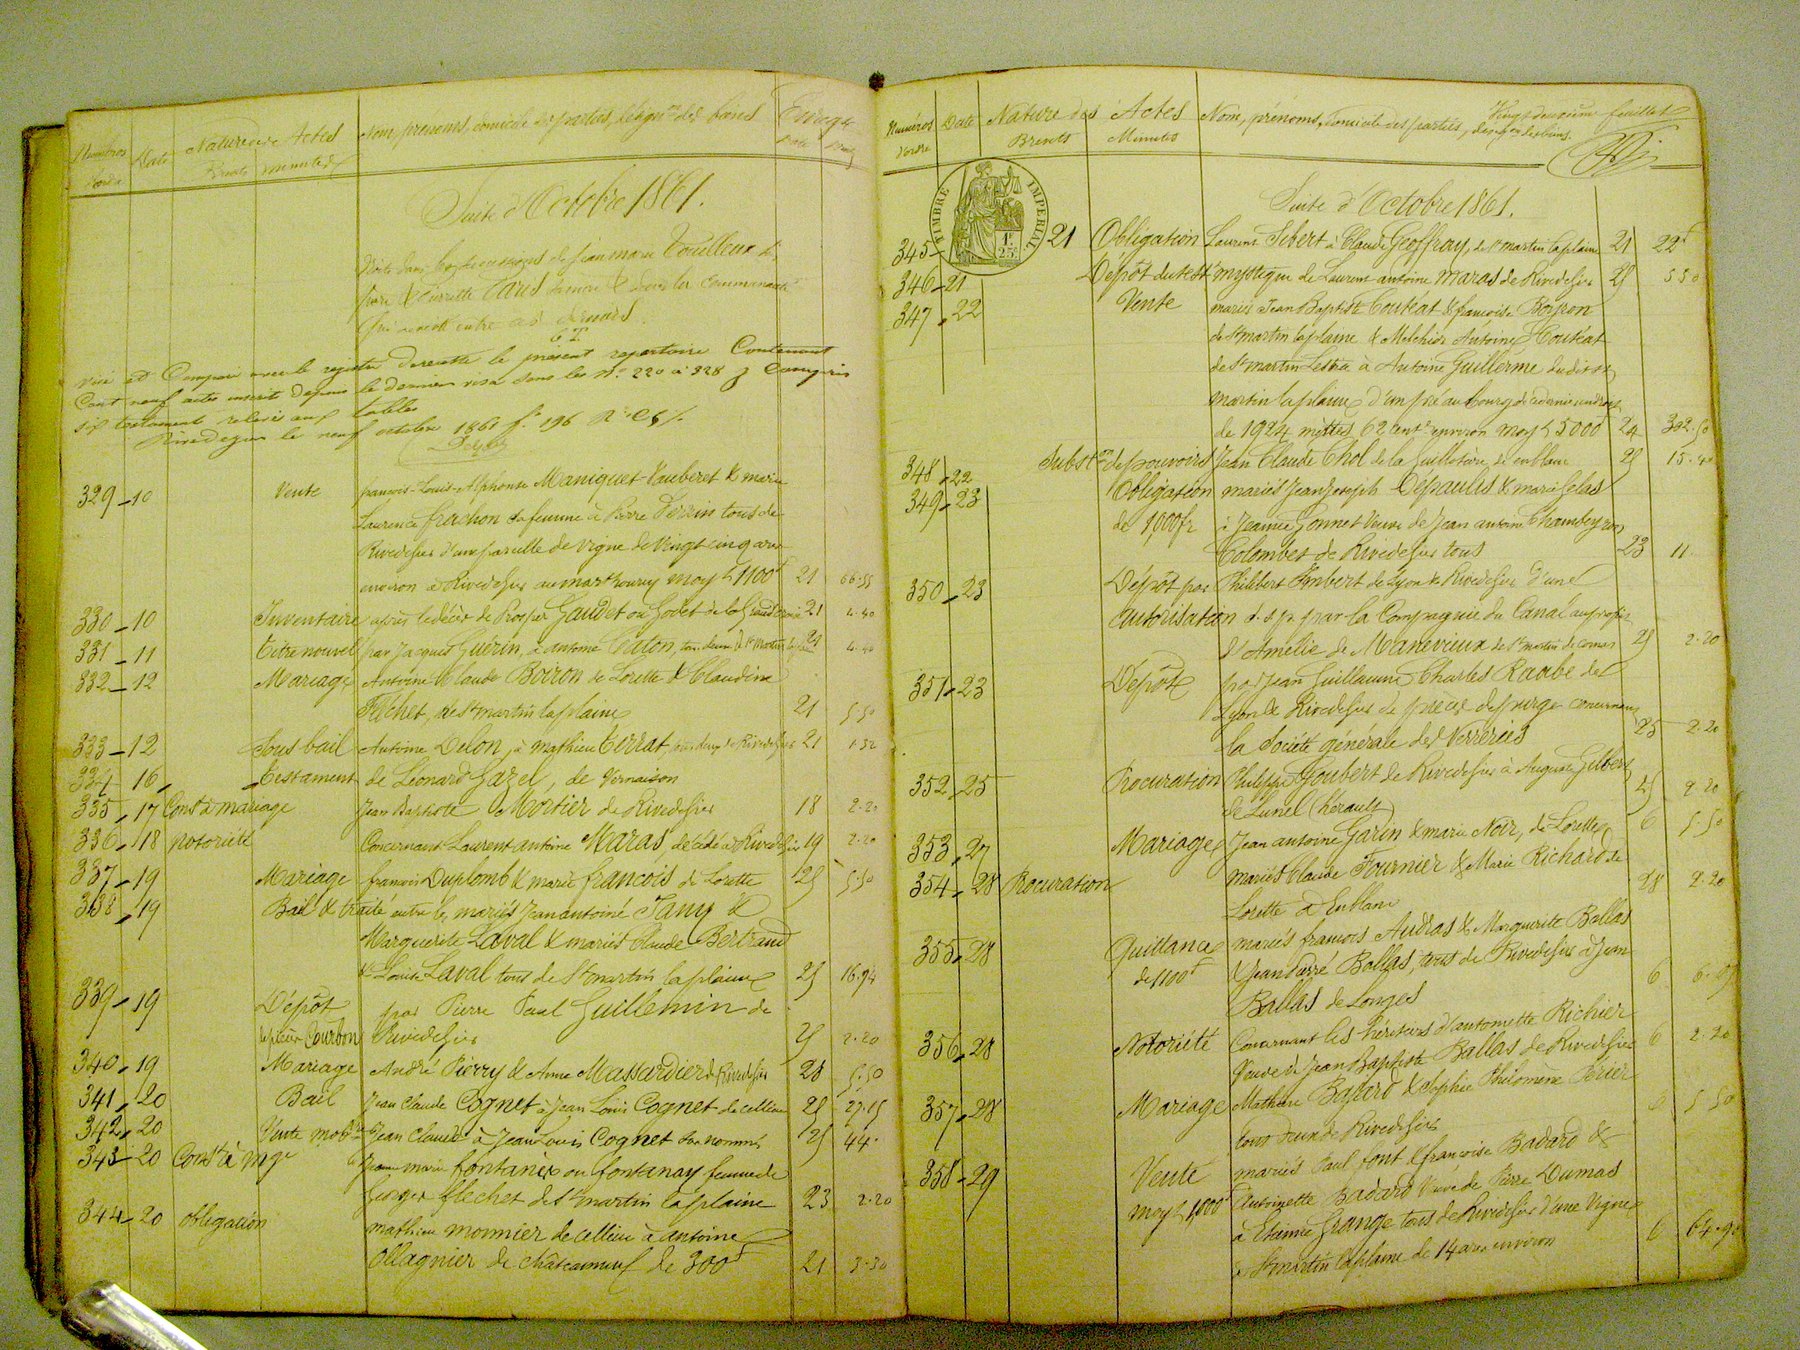 Numéros d'ordre Date Nature des Actes Nom, prénoms, domicile des parties, désign.on des biens Enreg.t
Brevets minutes Date
Suite d'Octobre 1861.
père & Pierrette sa mère & de la Communauté
qui a existé entre ces derniers.
Visé et Comparé avec le registre de recette le présent repertoire Contenant
Cent neuf actes inscrits depuis le dernier visa sous les Nos 220 à 328 y Compris
six testaments relevés aux tables
Rivedegier le neuf octobre 1861 f.o 196
329 - 10 Vente françois-Louis-Alphonse Maniquet Vauberet & marie
Laurence frachon sa femme à Pierre Perrin tous de
Rivedegier d'une parcelle de Vigne de Vingt cinq ares
environ à Rivedegier au moy 1100f 21 66.55
330 - 10 Inventaire après le décès de Prosper Gaudet ou Godet de la Grand'croix 21 4.40
331 - 11 Titre nouvel par Jacques Guérin, à antoine tous deux de St Martin laplaine 21 4.40
332 - 12 Mariage Antoine Claude Boiron de Lorette & Claudine
Fléchet, de St martin laplaine 21 5.50
333 - 12 Sous bail Antoine Delon, à mathieu Terrat, tous deux de Rivedegier 21 1.32
334 16 Testament de Léonard Gazel, de Vernaison
335 - 17 Const à mariage Jean Baptiste Mortier de Rivedegier 18 2.20
336 - 18 notorieté Concernant Laurent antoine Maras, décédé à Rivedegier 19 2.20
337 - 19 Mariage françois Duplomb & marie françois de Lorette 25 5.50
338 - 19 Bail & traité entre les mariés Jean antoine Jamy &
Marguerite Laval & mariés Claude Bertrand
& Louise Laval tous de St martin laplaine 25 16.94
339 - 19 Dépôt par Pierre Paul Guillemin de
Courbon Rivedegier 25 2.20
340 - 19 Mariage André Pierry & Anne Massardier de Rivedegier 28 5.50
341 - 20 Bail Jean Claude Cognet à Jean Louis Cognet de cellieu 25 27.15
342 - 20 Vente mob.re Jean Claude à Jean Louis Cognet susnommés 25 44.
343 - 20 Const à mge Jeanne marie fontanex ou fontanay femme de
Georges flechet de St martin laplaine 23 2.20
344 - 20 obligation mathieu monnier de cellieu à antoine
Ollagnier de châteauneuf de 300f 21 3.30
Numéros d'ordre Date Nature des Actes Nom, prénoms, domicile des parties, désig.on des biens. Vingt deuxième feuillet
Brevets Minutes
TIMBRE IMPERIAL 1F 25C
Suite d'Octobre 1861.
345 - 21 Obligation Laurent Sibert à Claude Geoffray, de St martin laplaine 21 22f
346 - 21 Dépôt du testt mystique de Laurent antoine Maras de Rivedegier 25 5.50
347 - 22 Vente mariés Jean Baptiste Coutéat & françoise Boyron
de St martin laplaine & Melchior Antoine Coutéat
de St martin Lestra à Antoine Guillerme dudit St
martin laplaine d'un pré au bourg de ce dernier endroit
de 1924 mètres 62 centes environ moy 5000 24 302.50
348 - 22 Subston de pouvoirs Jean Claude Chol de la Guillotière, en blanc 25 15.40
349 - 23 Obligation mariés Jean Joseph Depaulis & marie Gelas
de 1,000fr à Jeanne Gonnet Veuve de Jean antoine Chambeyron
Colombet de Rivedegier tous 23 11
350 - 23 Dépôt par Philibert Imbert de Lyon & Rivedegier d'une
autorisation d. s. p. par la Compagnie du Canal au profit
d'Amélie de Manevieux de St martin de cornas 25 2.20
351 - 23 Dépôt par Jean Guillaume Charles Raabe de
Lyon & Rivedegier de pièces de purge concernant
la Société générale des Verreries 25 2.20
352 - 25 Procuration Philippe Goubert de Rivedegier à Auguste Gilbert
de Lunel (hérault) 25 2.20
353 - 27 Mariage Jean antoine Garin & marie Noir, de Lorette 6 5.50
354 - 28 Procuration mariés Claude Fournier & Marie Richard de
Lorette à En blanc 28 2.20
355 - 28 Quittance mariés françois Audras & Marguerite Ballas
de 1100f & Jean Pierre Ballas, tous de Rivedegier à Jean
Ballas de Longes 6
356 - 28 Notoriété Concernant les héritiers d'antoinette Richier
Veuve de Jean Baptiste Ballas de Rivedegier 6 2.20
357 - 28 Mariage Mathieu Badard & Sophie Philomène Périer
tous deux de Rivedegier 6 5.50
358 - 29 Vente mariés Paul font & françoise Badard &
moy 1,000f Antoinette Badard Veuve de Pierre Dumas
à Etienne Grange tous de Rivedegier d'une Vigne
à St martin laplaine de 14 ares environ 6 64.90